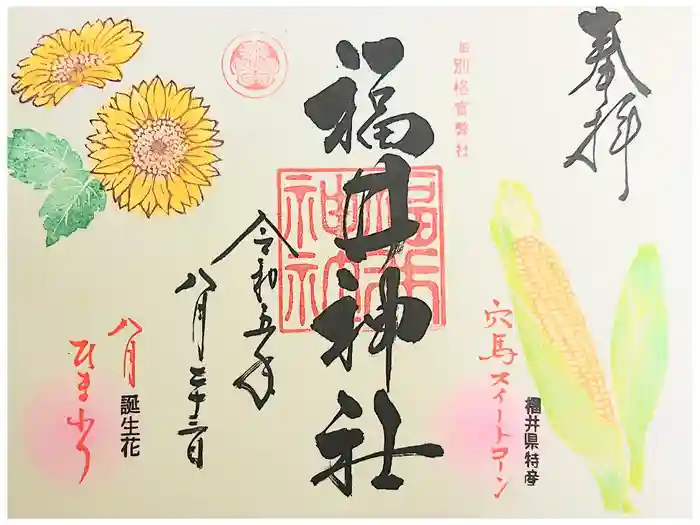 奉拝
旧別格官幣社
福井神社
福井神社
福井県特産
穴馬スイートコーン
令和五年
八月二十三日
八月誕生花
ひまわり